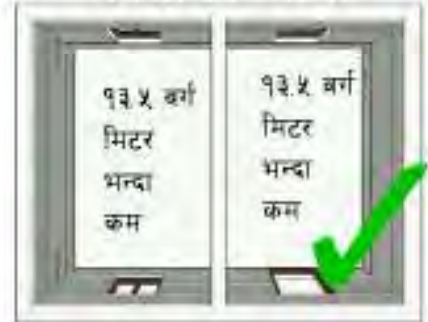 १३.५ वर्ग
मिटर
भन्दा
कम
१३.५ वर्ग
मिटर
भन्दा
कम